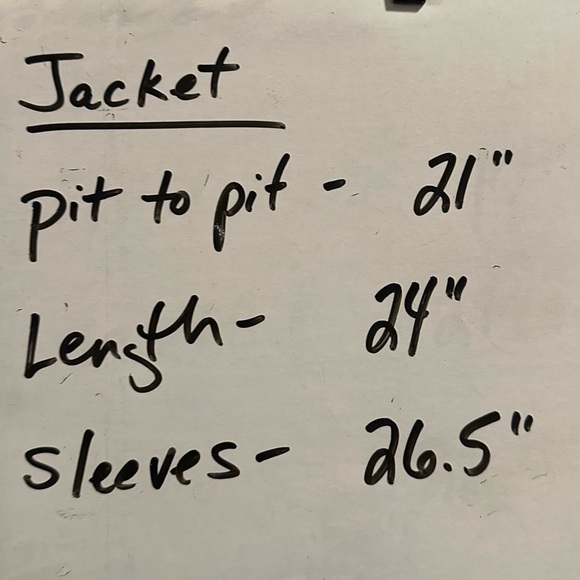 Jacket
pit to pit - 21"
Length - 24"
Sleeves - 26.5"